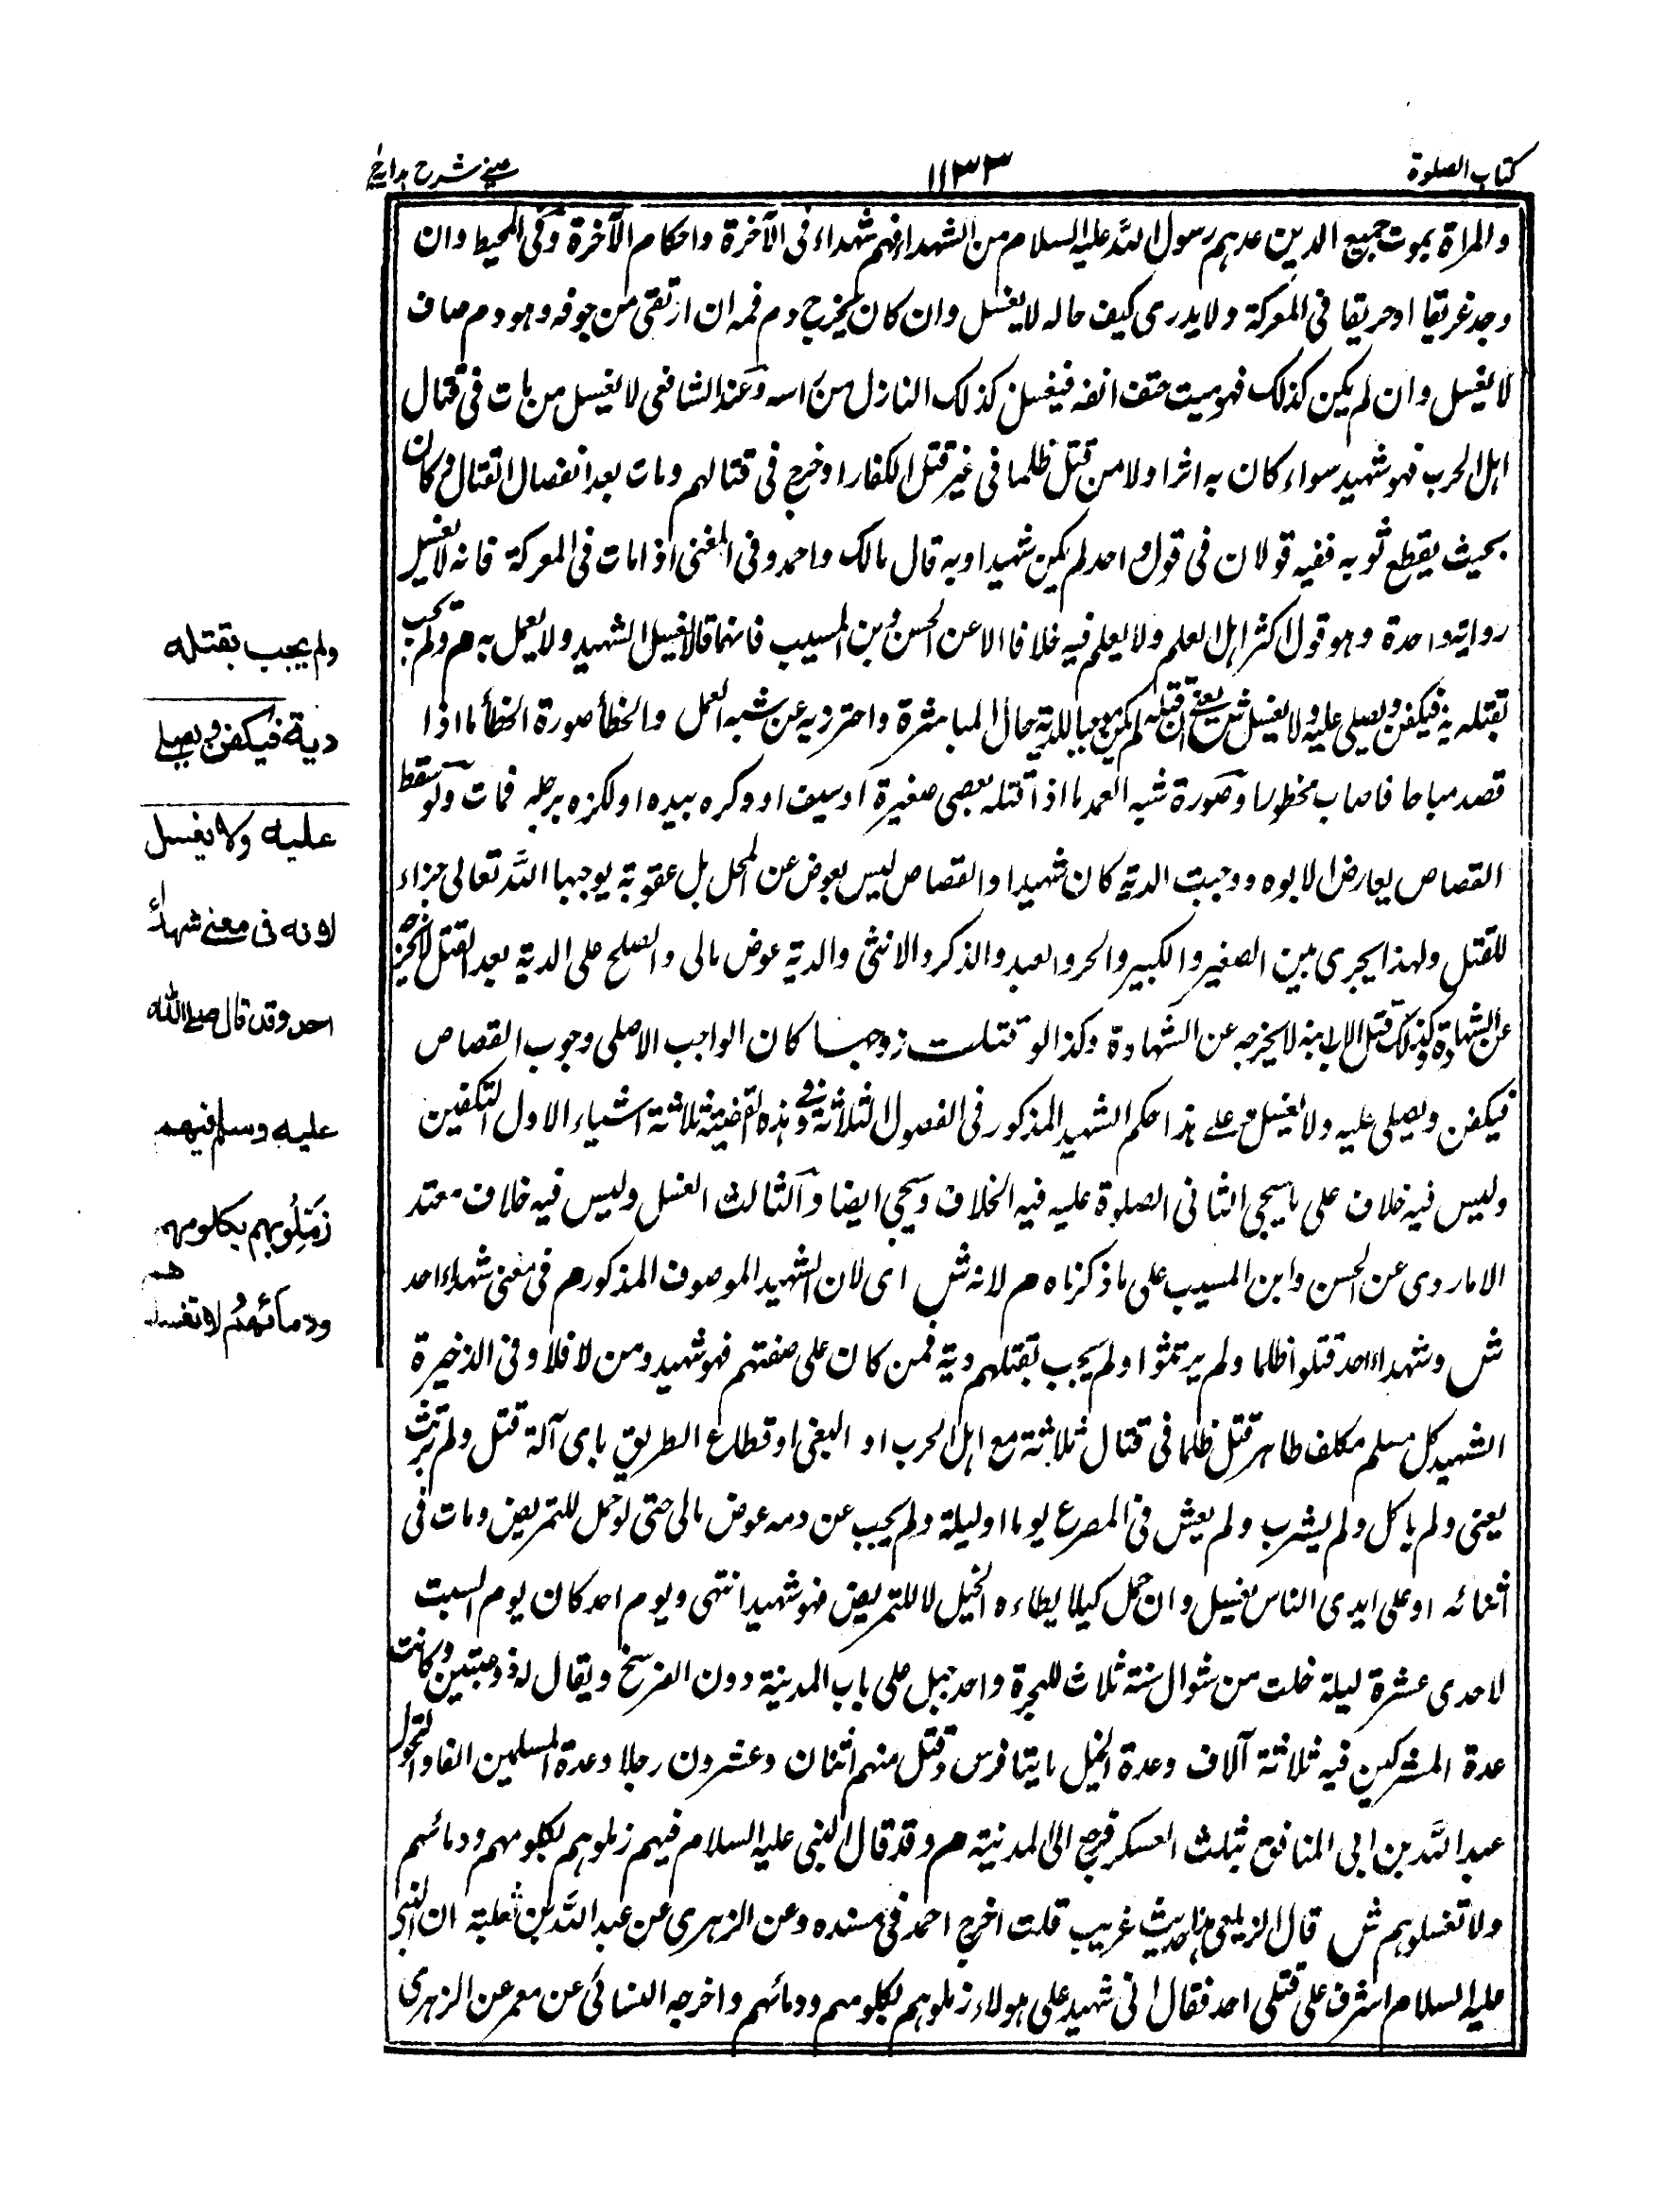 كتاب الصلوة
١١٣٣
عيني شرح هداية
والمراة بموت جميع الذين عدهم رسول الله عليه السلام من الشهداء فهم شهداء في الآخرة واحكام الآخرة وفي المحيط وان
وجد غريقا او حريقا في المعركة ولا يدرى كيف حاله لا يغسل وان كان يخرج دم فمه ان ارتقى من جوفه وهو دم صاف
لا يغسل وان لم يكن كذلك فهو ميت حتف انفه فيغسل كذلك النازل من راسه وعند الشافعي لا يغسل من مات في قتال
اهل الحرب فهو شهيد سواء كان به اثر اولا من قتل ظلما في غير قتل الكفار او خرج في قتالهم ومات بعد انفصال القتال وكان
بحيث يقطع ثوبه ففيه قولان في قول واحد لم يكن شهيدا وبه قال مالك واحمد وفي المغني اذا مات في المعركة فانه لا يغسل
رواية واحدة وهو قول اكثر اهل العلم ولا يعلم فيه خلافا الا عن الحسن وابن المسيب فانهما قالا يغسل الشهيد ولا يعمل به م ولم يجب
بقتله دية فيكفن ويصلى عليه ولا يغسل ش يعني ان قتله لم يكن موجبا للدية حال المباشرة واحترز به عن شبه العمد والخطأ صورة الخطأ ما اذا
قصد مباحا فاصاب محظورا وصورة شبه العمد ما اذا قتله بعصى صغيرة او سيف او وكره بيده او لكزه برجله فمات ولو سقط
القصاص بعارض الابوه ووجبت الدية كان شهيدا والقصاص ليس بعوض عن المحل بل عقوبة يوجبها الله تعالى جزاء
للقتل ولهذا يجرى بين الصغير والكبير والحر والعبد والذكر والانثى والدية عوض مالى والصلح على الدية بعد القتل لا يخرجه
عن الشهادة وكذلك قتل الاب ابنه لا يخرجه عن الشهادة وكذا لو قتلت زوجها كان الواجب الاصلى وجوب القصاص
فيكفن ويصلى عليه ولا يغسل ش على هذا حكم الشهيد المذكور في الفصول الثلاثة وفي هذه القضية ثلاثة اشياء الاول التكفين
وليس فيه خلاف على ما سيجي الثاني الصلوة عليه فيه الخلاف وسيجي ايضا والثالث الغسل وليس فيه خلاف معتد
الا ما روى عن الحسن وابن المسيب على ما ذكرناه م لانه ش اى لان الشهيد الموصوف المذكور م في معنى شهداء احد
ش وشهداء احد قتلوا ظلما ولم يرتثوا ولم يجب بقتلهم دية فمن كان على صفتهم فهو شهيد ومن لا فلا وفي الذخيرة
الشهيد كل مسلم مكلف طاهر قتل ظلما في قتال ثلاثة مع اهل الحرب او البغى او قطاع الطريق باى آلة قتل ولم يرتث
يعنى ولم ياكل ولم يشرب ولم يعش في المصرع يوما او ليلة ولم يجب عن دمه عوض مالى حتى لو حمل للتمريض ومات في
أثنائه او على ايدى الناس يغسل وان حمل كيلا يطاءه الخيل لا للتمريض فهو شهيد انتهى ويوم احد كان يوم السبت
لاحدى عشرة ليلة خلت من شوال سنة ثلاث للهجرة واحد جبل على باب المدينة دون الفرسخ ويقال له ذو عينين وكانت
عدة المشركين فيه ثلاثة آلاف وعدة الخيل مايتا فرس وقتل منهم اثنان وعشرون رجلا وعدة المسلمين الفا والتحول
عبد الله بن ابى المنافق بثلث العسكر فرجع الى المدينة م وقد قال النبى عليه السلام فيهم زملوهم بكلومهم ودمائهم
ولا تغسلوهم ش قال الزيلعى هذا حديث غريب قلت اخرج احمد في مسنده وعن الزهرى عن عبد الله بن ثعلبة ان النبى
عليه السلام اشرف على قتلى احد فقال انى شهيد على هولاء زملوهم بكلومهم ودمائهم واخرجه النسائي عن معمر عن الزهرى
ولم يجب بقتله
دية فيكفن ويصلي
عليه ولا يغسل
لانه فى معنى شهداء
احد وقد قال صلى الله
عليه وسلم فيهم
زَمِّلُوهم بكلومهم
ودمائهم لا تغسلوهم